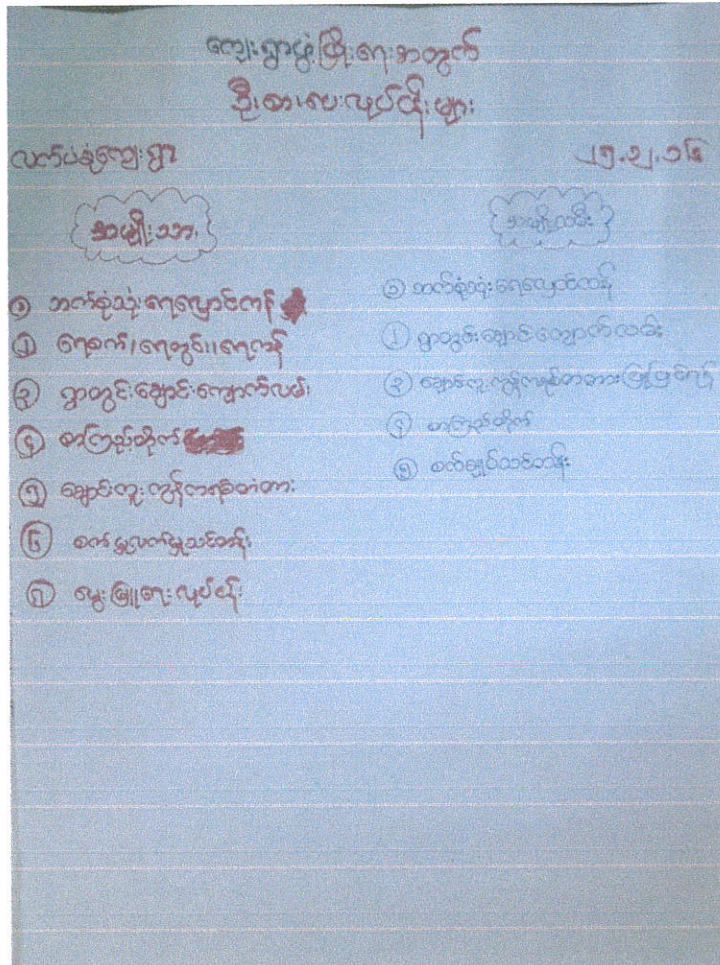 ကျေးရွာဖွံ့ဖြိုးရေးအတွက်
ဦးစားပေးလုပ်ငန်းများ
လက်ပံစုံကျေးရွာ
၂၅.၃.၁၆
အမျိုးသား
၁ ဘက်စုံသုံးရေလှောင်ကန်
၂ ရေစက်၊ရေတွင်း၊ရေကန်
၃ ရွာတွင်းချောင်းကျောက်လမ်း
၄ စာကြည့်တိုက်
၅ ချောင်းကူးကွန်ကရစ်တံတား
၆ စက်မှုလက်မှုသင်တန်း
၇ မွေးမြူရေးလုပ်ငန်း
အမျိုးသမီး
၁ ဘက်စုံသုံးရေလှောင်ကန်
၂ ရွာတွင်းချောင်းကျောက်လမ်း
၃ ချောင်းကူးကွန်ကရစ်တံတားပြုပြင်ရန်
၄ စာကြည့်တိုက်
၅ စက်ချုပ်သင်တန်း